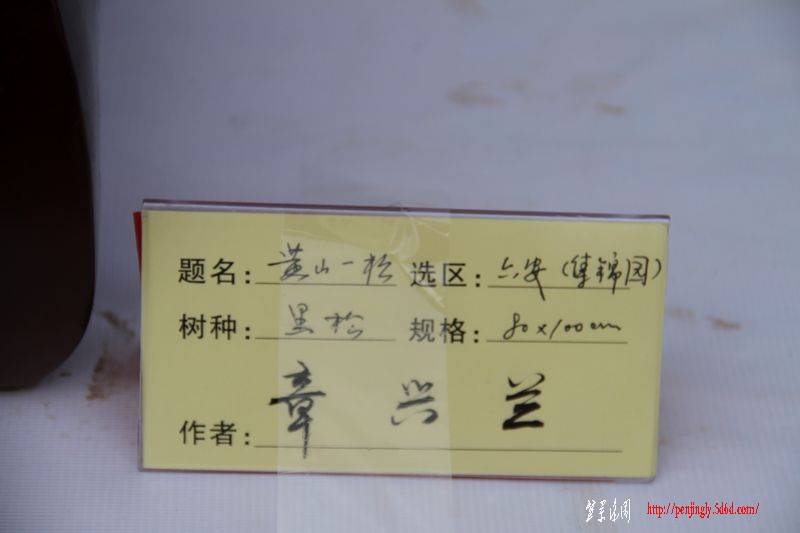 题名: 黄山一松 选区: 六安(集锦园)
树种: 黑松 规格: 80x100cm
作者: 章兴兰
http://penjingly.5d6d.com/